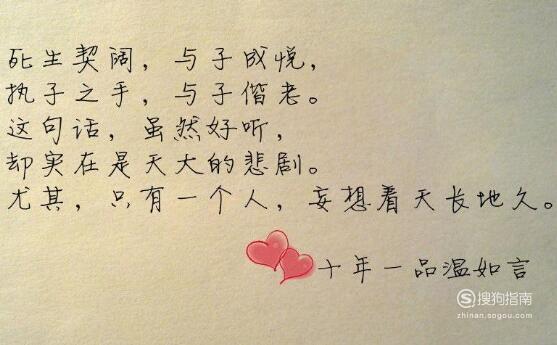 死生契阔，与子成悦，
执子之手，与子偕老。
这句话，虽然好听，
却实在是天大的悲剧。
尤其，只有一个人，妄想着天长地久。
十年一品温如言
S 搜狗指南
zhinan.sogou.com